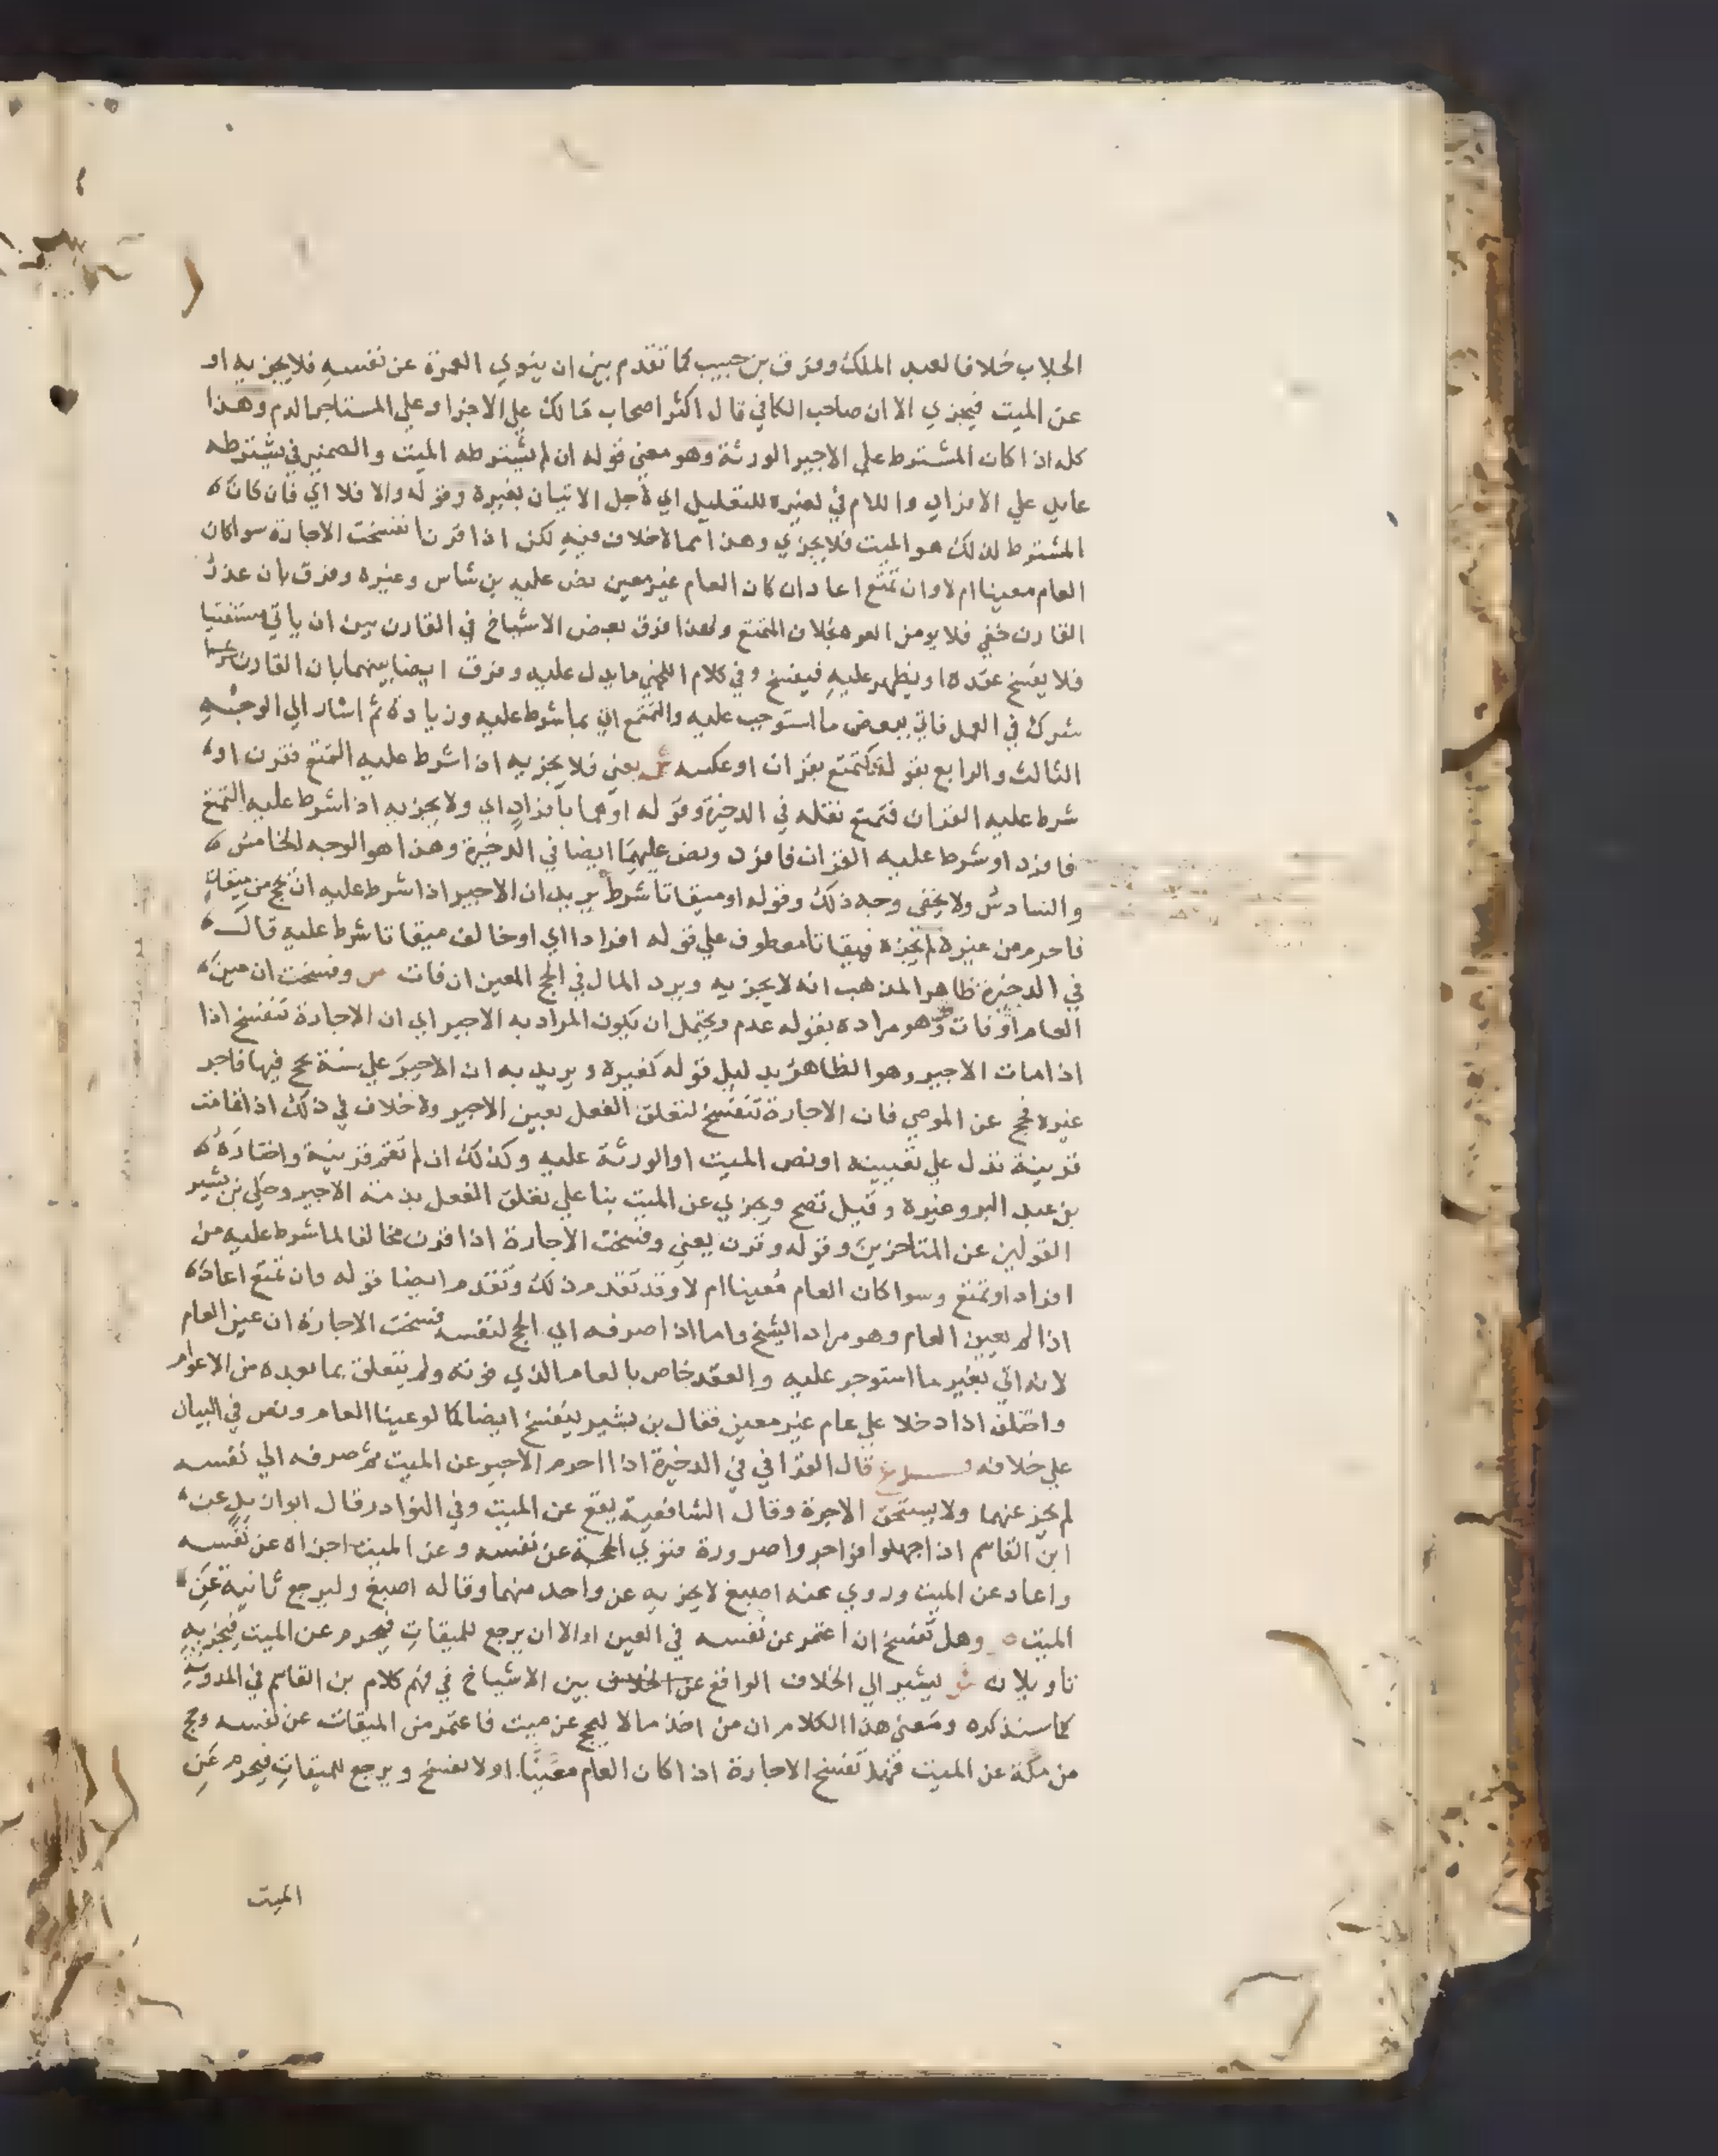 الجلاب خلافا لعبد الملك وفرق بن حبيب كما تقدم بين ان ينوي العمرة عن نفسه فلا يجزيه او
عن الميت فيجزي الا ان صاحب الكافي قال اكثر اصحاب مالك علي الاجزا وعلي المستاجر الدم وهذا
كله اذا كان المشترط علي الاجير الورثة وهو معني قوله ان لم يشترطه الميت والضمير في يشترطه
عايد علي الافراد واللام في لغيره للتعليل اي لاجل الاتيان بغيره وقوله والا فلا اي فان كان
المشترط لذلك هو الميت فلا يجزي وهذا مما لا خلاف فيه لكن اذا قرن انفسخت الاجارة سوا كان
العام معينا ام لا وان تمتع اعاد ان كان العام غير معين نص عليه بن شاس وغيره وفرق بان عذر
القارن خفي فلا يومن العود بخلاف المتمتع ولهذا فرق بعض الاشياخ في القارن بين ان ياتي مستفتيا
فلا يفسخ عقده او يظهر عليه فيفسخ وفي كلام اللخمي ما يدل عليه وفرق ايضا بينهما بان القارن
شرك في العمل فاتي ببعض ما استوجب عليه والمتمتع اتي بما شرط عليه وزيادة ثم اشار الي الوجه
الثالث والرابع بقوله كتمتع بقران او عكسه ش يعني فلا يجزيه اذا اشرط عليه التمتع فقرن او
شرط عليه القران فتمتع نقله في الدخيرة وقوله او هما بافراد اي ولا يجزيه اذا شرط عليه التمتع
فافرد او شرط عليه القران فافرد ونص عليهما ايضا في الدخيرة وهذا هو الوجه الخامس
والسادس ولا يخفي وجه ذلك وقوله او ميقاتا شرط يريد ان الاجير اذا شرط عليه ان يحج من ميقات
فاحرم من غيره لم يجزه فميقاتا معطوف علي قوله افرادا اي او خالف ميقاتا شرط عليه قال
في الدخيرة ظاهر المذهب انه لا يجزيه ويرد المال في الحج المعين ان فات ص وفسخت ان عين
العام او فات وهو مراده بقوله عدم ويحتمل ان يكون المراد به الاجير اي ان الاجارة تنفسخ اذا
اذا مات الاجير وهو الظاهر بدليل قوله كغيره ويريد به ان الاجير علي سنة يحج فيها فاجر
غيره فحج عن الموصي فان الاجارة تنفسخ لتعلق الفعل بعين الاجير ولا خلاف في ذلك اذا قامت
قرينة تدل علي تعيينه او نص الميت او الورثة عليه وكذلك ان لم تقم قرينة واختاره
بن عبد البر وغيره وقيل تصح ويجزي عن الميت بنا علي تعلق الفعل بذمة الاجير وحكي بن بشير
القولين عن المتاخرين وقوله وقرن يعني وفسخت الاجارة اذا قرن مخالفا لما شرط عليه من
افراد او تمتع وسوا كان العام معينا ام لا وقد تقدم ذلك وتقدم ايضا قوله وان تمتع اعاده
اذا لم يعين العام وهو مراد الشيخ واما اذا صرفه الي الحج لنفسه فسخت الاجارة ان عين العام
لانه اتي بغير ما استوجر عليه والعقد خاص بالعام الذي فوته ولم يتعلق بما بعده من الاعوام
واختلف اذا دخلا علي عام غير معين فقال بن بشير ينفسخ ايضا كما لو عينا العام ونص في البيان
علي خلافه فرع قال القرافي في الدخيرة اذا احرم الاجير عن الميت ثم صرفه الي نفسه
لم يجز عنهما ولا يستحق الاجرة وقال الشافعية يقع عن الميت وفي النوادر قال ابوا زيد عن
ابن القاسم اذا جهلوا فواجروا صرورة فنوي الحجة عن نفسه وعن الميت اجزاه عن نفسه
واعاد عن الميت وروي عنه اصبغ لا يجزيه عن واحد منهما وقاله اصبغ وليرجع ثانية عن
الميت وهل تفسخ ان اعتمر عن نفسه في العين او الا ان يرجع للميقات فيحرم عن الميت فيجزيه
تاويلان ش يشير الي الخلاف الواقع بين الاشياخ في فهم كلام بن القاسم في المدونة
كما سنذكره ومعني هذا الكلام ان من اخذ مالا ليحج عن ميت فاعتمر من الميقات عن نفسه وحج
من مكة عن الميت فهل تفسخ الاجارة اذا كان العام معينا او لا تفسخ ويرجع للميقات فيحرم عن
الميت